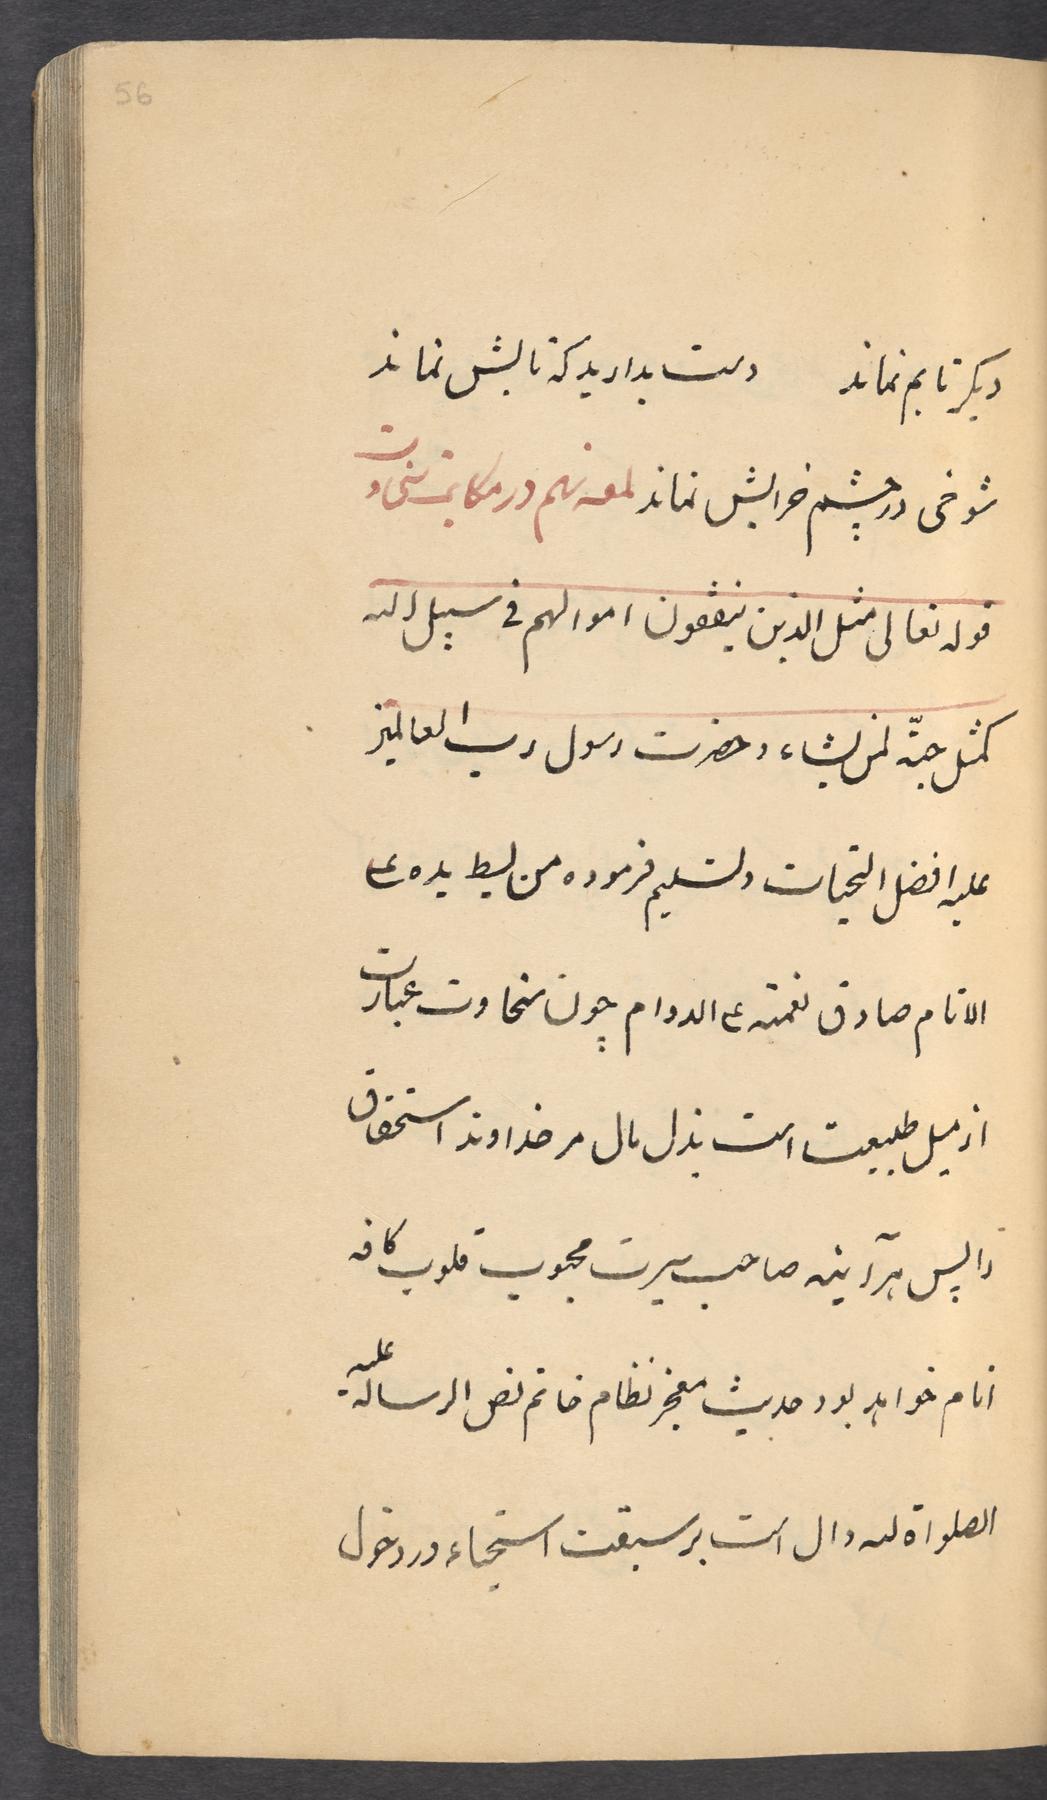 56
دیکر تابم نماند دست بدارید که تابش نماند
شوخی در چشم خرابش نماند لمعه نهم در مکاتبت سخاوت
قوله تعالی مثل الذین ینفقون اموالهم فی سبیل الله
کمثل حبّة لمن یشاء و حضرت رسول رب العالمین
علیه افضل التحیات و تسلیم فرموده من بسط یده ع
الانام صادق نعمته ع الدوام چون سخاوت عبارت
از میل طبیعت است بذل مال مر خداوند استحقاق
را پس هرآینه صاحب سیرت محبوب قلوب کافه
انام خواهد بود حدیث معجز نظام خاتم نص الرسالة علیه
الصلواة لله دال است بر سبقت اسخیاء در دخول